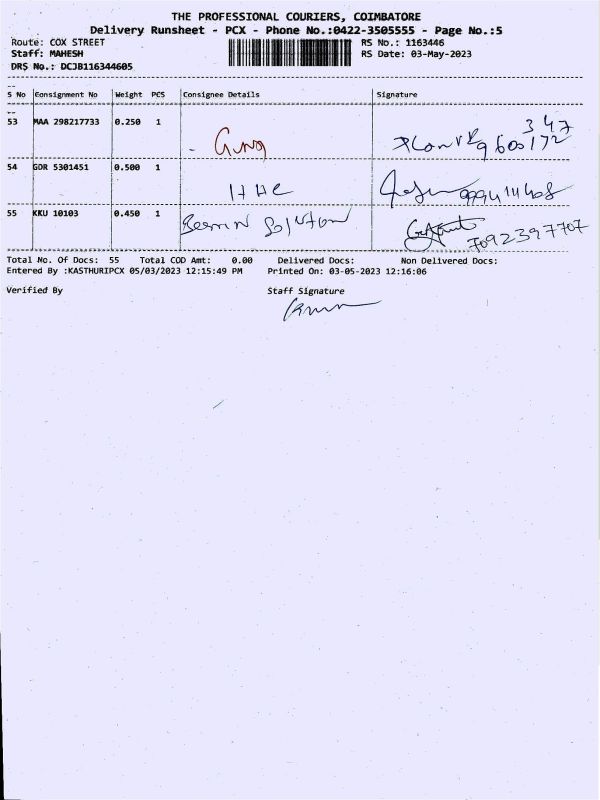 THE PROFESSIONAL COURIERS, COIMBATORE
Delivery Runsheet - PCX - Phone No.:0422-3505555 - Page No.:5
Route: COX STREET RS No.: 1163446
Staff: MAHESH RS Date: 03-May-2023
DRS No.: DCJB116344605
S No Consignment No Weight PCS Consignee Details Signature
53 MAA 298217733 0.250 1 347
9600172
54 GDR 5301451 0.500 1
55 KKU 10103 0.450 1 7092397707
Total No. Of Docs: 55 Total COD Amt: 0.00 Delivered Docs: Non Delivered Docs:
Entered By :KASTHURIPCX 05/03/2023 12:15:49 PM Printed On: 03-05-2023 12:16:06
Verified By Staff Signature